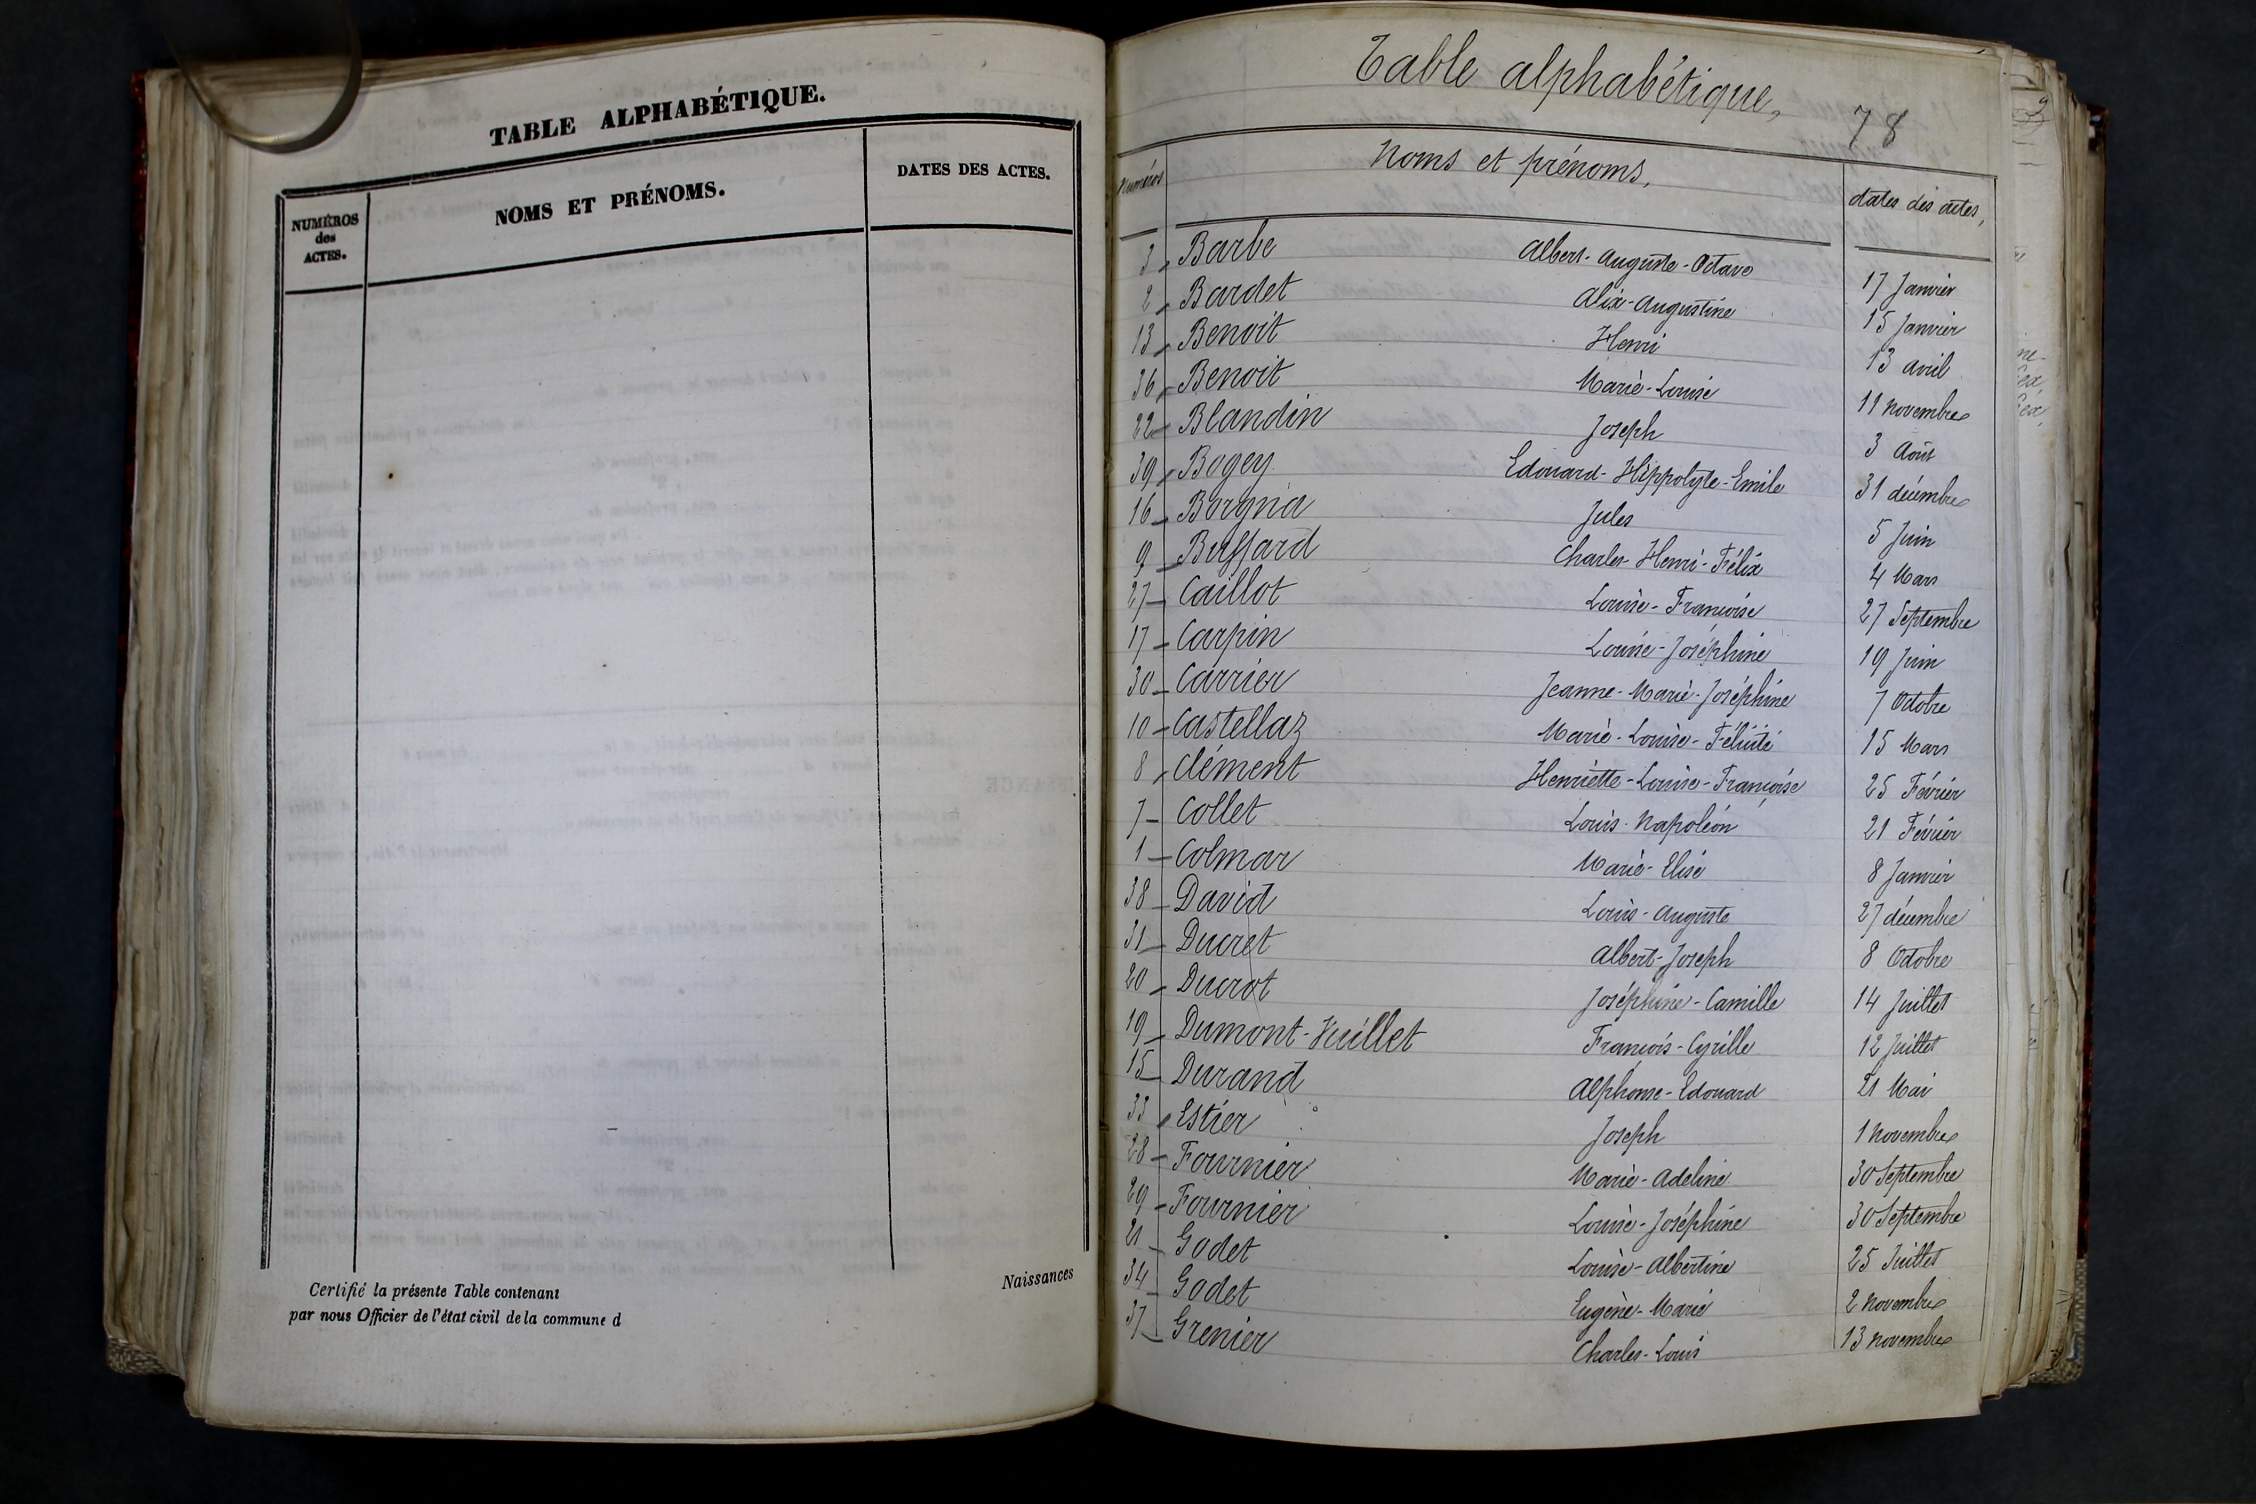 TABLE ALPHABÉTIQUE.
NUMÉROS
des
ACTES.
NOMS ET PRÉNOMS.
DATES DES ACTES.
Certifié la présente Table contenant
par nous Officier de l'état civil de la commune d
Naissances
Table alphabétique,
78
Numéros
Noms et prénoms,
dates des actes,
3 Barbe Albert-Auguste-Octave 17 Janvier
2 Bardet Alix-Augustine 15 Janvier
13 Benoit Henri 13 avril
36 Benoit Marie-Louise 11 novembre
22 Blandin Joseph 3 Août
39 Bogey Edouard-Hippolyte-Emile 31 décembre
16 Borgna Jules 5 Juin
9 Buffard Charles-Henri-Félix 4 Mars
27 Caillot Louise-Françoise 27 Septembre
17 Carpin Louise-Joséphine 19 Juin
30 Carrier Jeanne-Marie-Joséphine 7 Octobre
10 Castellaz Marie-Louise-Félicité 15 Mars
8 Clément Henriette-Louise-Françoise 25 Février
7 Collet Louis-Napoléon 21 Février
1 Colmar Marie-Elise 8 Janvier
38 David Louis-Auguste 27 décembre
31 Ducret Albert-Joseph 8 Octobre
20 Ducrot Joséphine-Camille 14 Juillet
19 Dumont-Vuillet François-Cyrille 12 Juillet
15 Durand Alphonse-Edouard 21 Mai
33 Estier Joseph 1 novembre
28 Fournier Marie-Adeline 30 Septembre
29 Fournier Louise-Joséphine 30 Septembre
21 Godet Louise-Albertine 25 Juillet
34 Godet Eugène-Marie 2 novembre
37 Grenier Charles-Louis 13 novembre